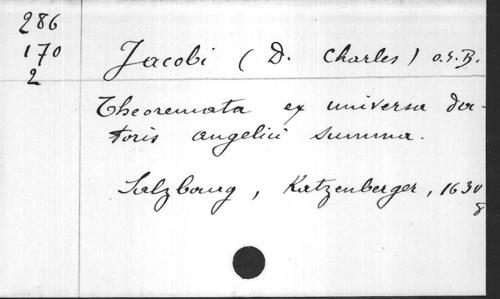 286
170
2
Jacobi (D. Charles) o.S.B.
Theoremata ex universa doc-
toris angelici summa.
Salzbourg, Katzenberger, 1630
8